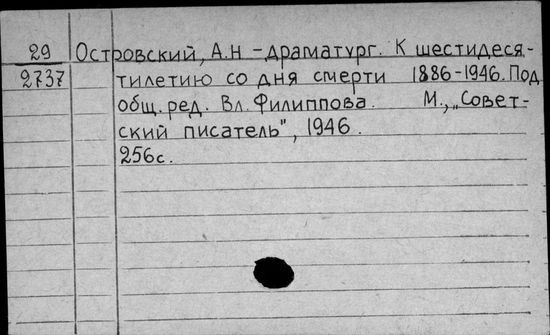 29 Островский, А.Н - драматург. К шестидеся-
2737 тилетию со дня смерти 1886-1946. Под
общ. ред. Вл. Филиппова. М., „Совет-
ский писатель", 1946.
256с.